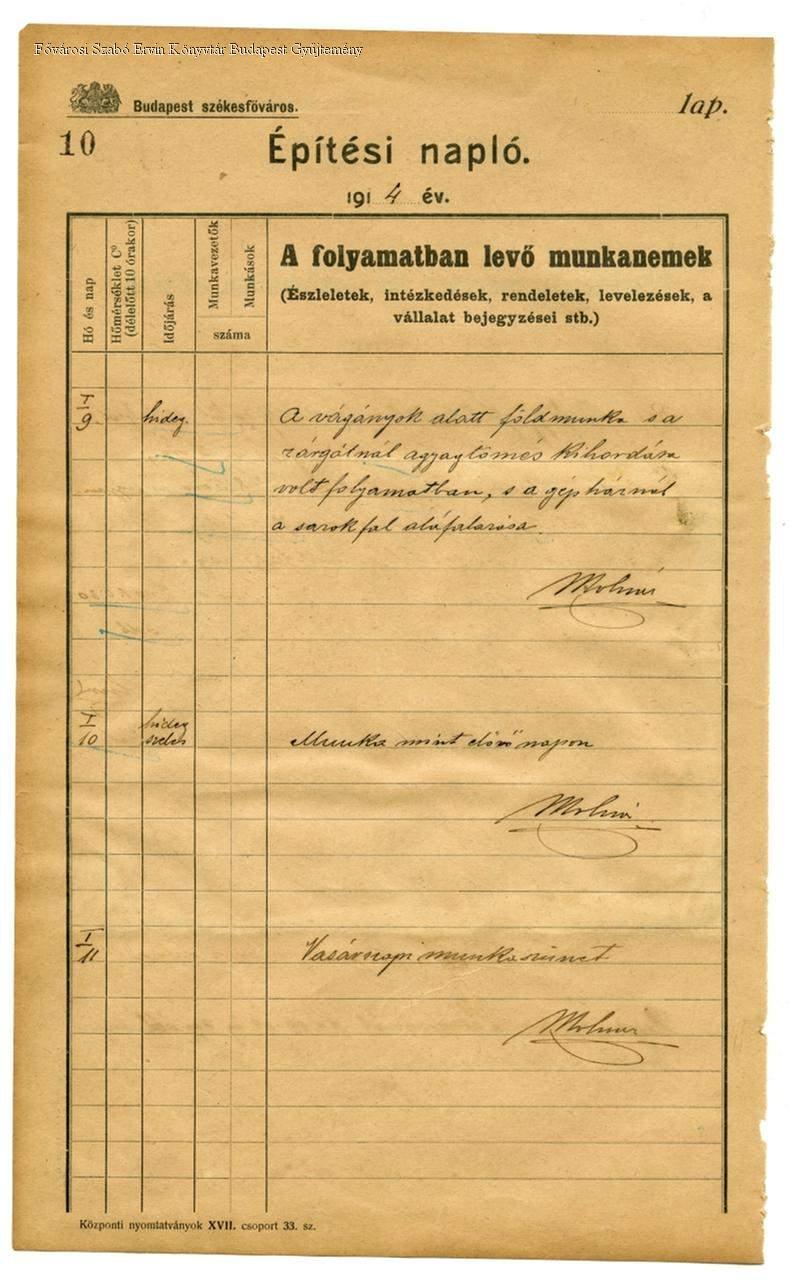 Fővárosi Szabó Ervin Könyvtár Budapest Gyűjtemény
Budapest székesfőváros.
lap.
10
Építési napló.
1914 év.
Hó és nap
Hőmérséklet C°
(délelőtt 10 órakor)
Időjárás
Munkavezetők
Munkások
száma
A folyamatban levő munkanemek
(Észleletek, intézkedések, rendeletek, levelezések, a
vállalat bejegyzései stb.)
I
9
hideg
A vágányok alatt földmunka s a
zárgátnál agyagtömés kihordása
volt folyamatban, s a gépháznál
a sarokfal aláfalazása.
Molnár
I
10
hideg
szeles
Munka mint előző napon
Molnár
I
11
Vasárnapi munkaszünet
Molnár
Központi nyomtatványok XVII. csoport 33. sz.